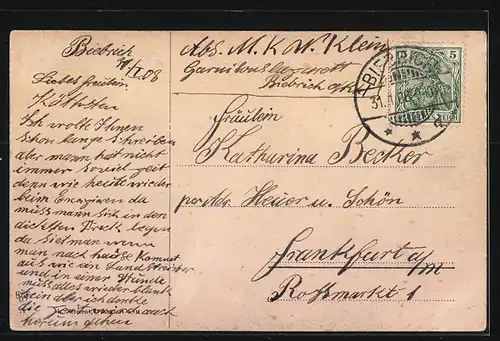 Biebrich
31/I.08
Liebes Freulein
Ich wolte Ihnen
schon lange schreiben
aber mann hat nicht
immer soviel zeit
denn wie heute wieder
beim Exerzieren da
muss mann sich in den
dichsten Dreck legen
da sietman wenn
man nach hause kommt
aus wie ein Landstreicher
und in einer Stunde
muss alles wieder blank
sein aber ich denke
die auch
herum gehen
Abs. M. K. W. Klein
Garnisonslazarett
Biebrich
5
BIEBRICH
31.1.08
Fräulein
Katharina Becker
per Adr. Heuer u. Schön
Frankfurt a/m
Rossmarkt 1